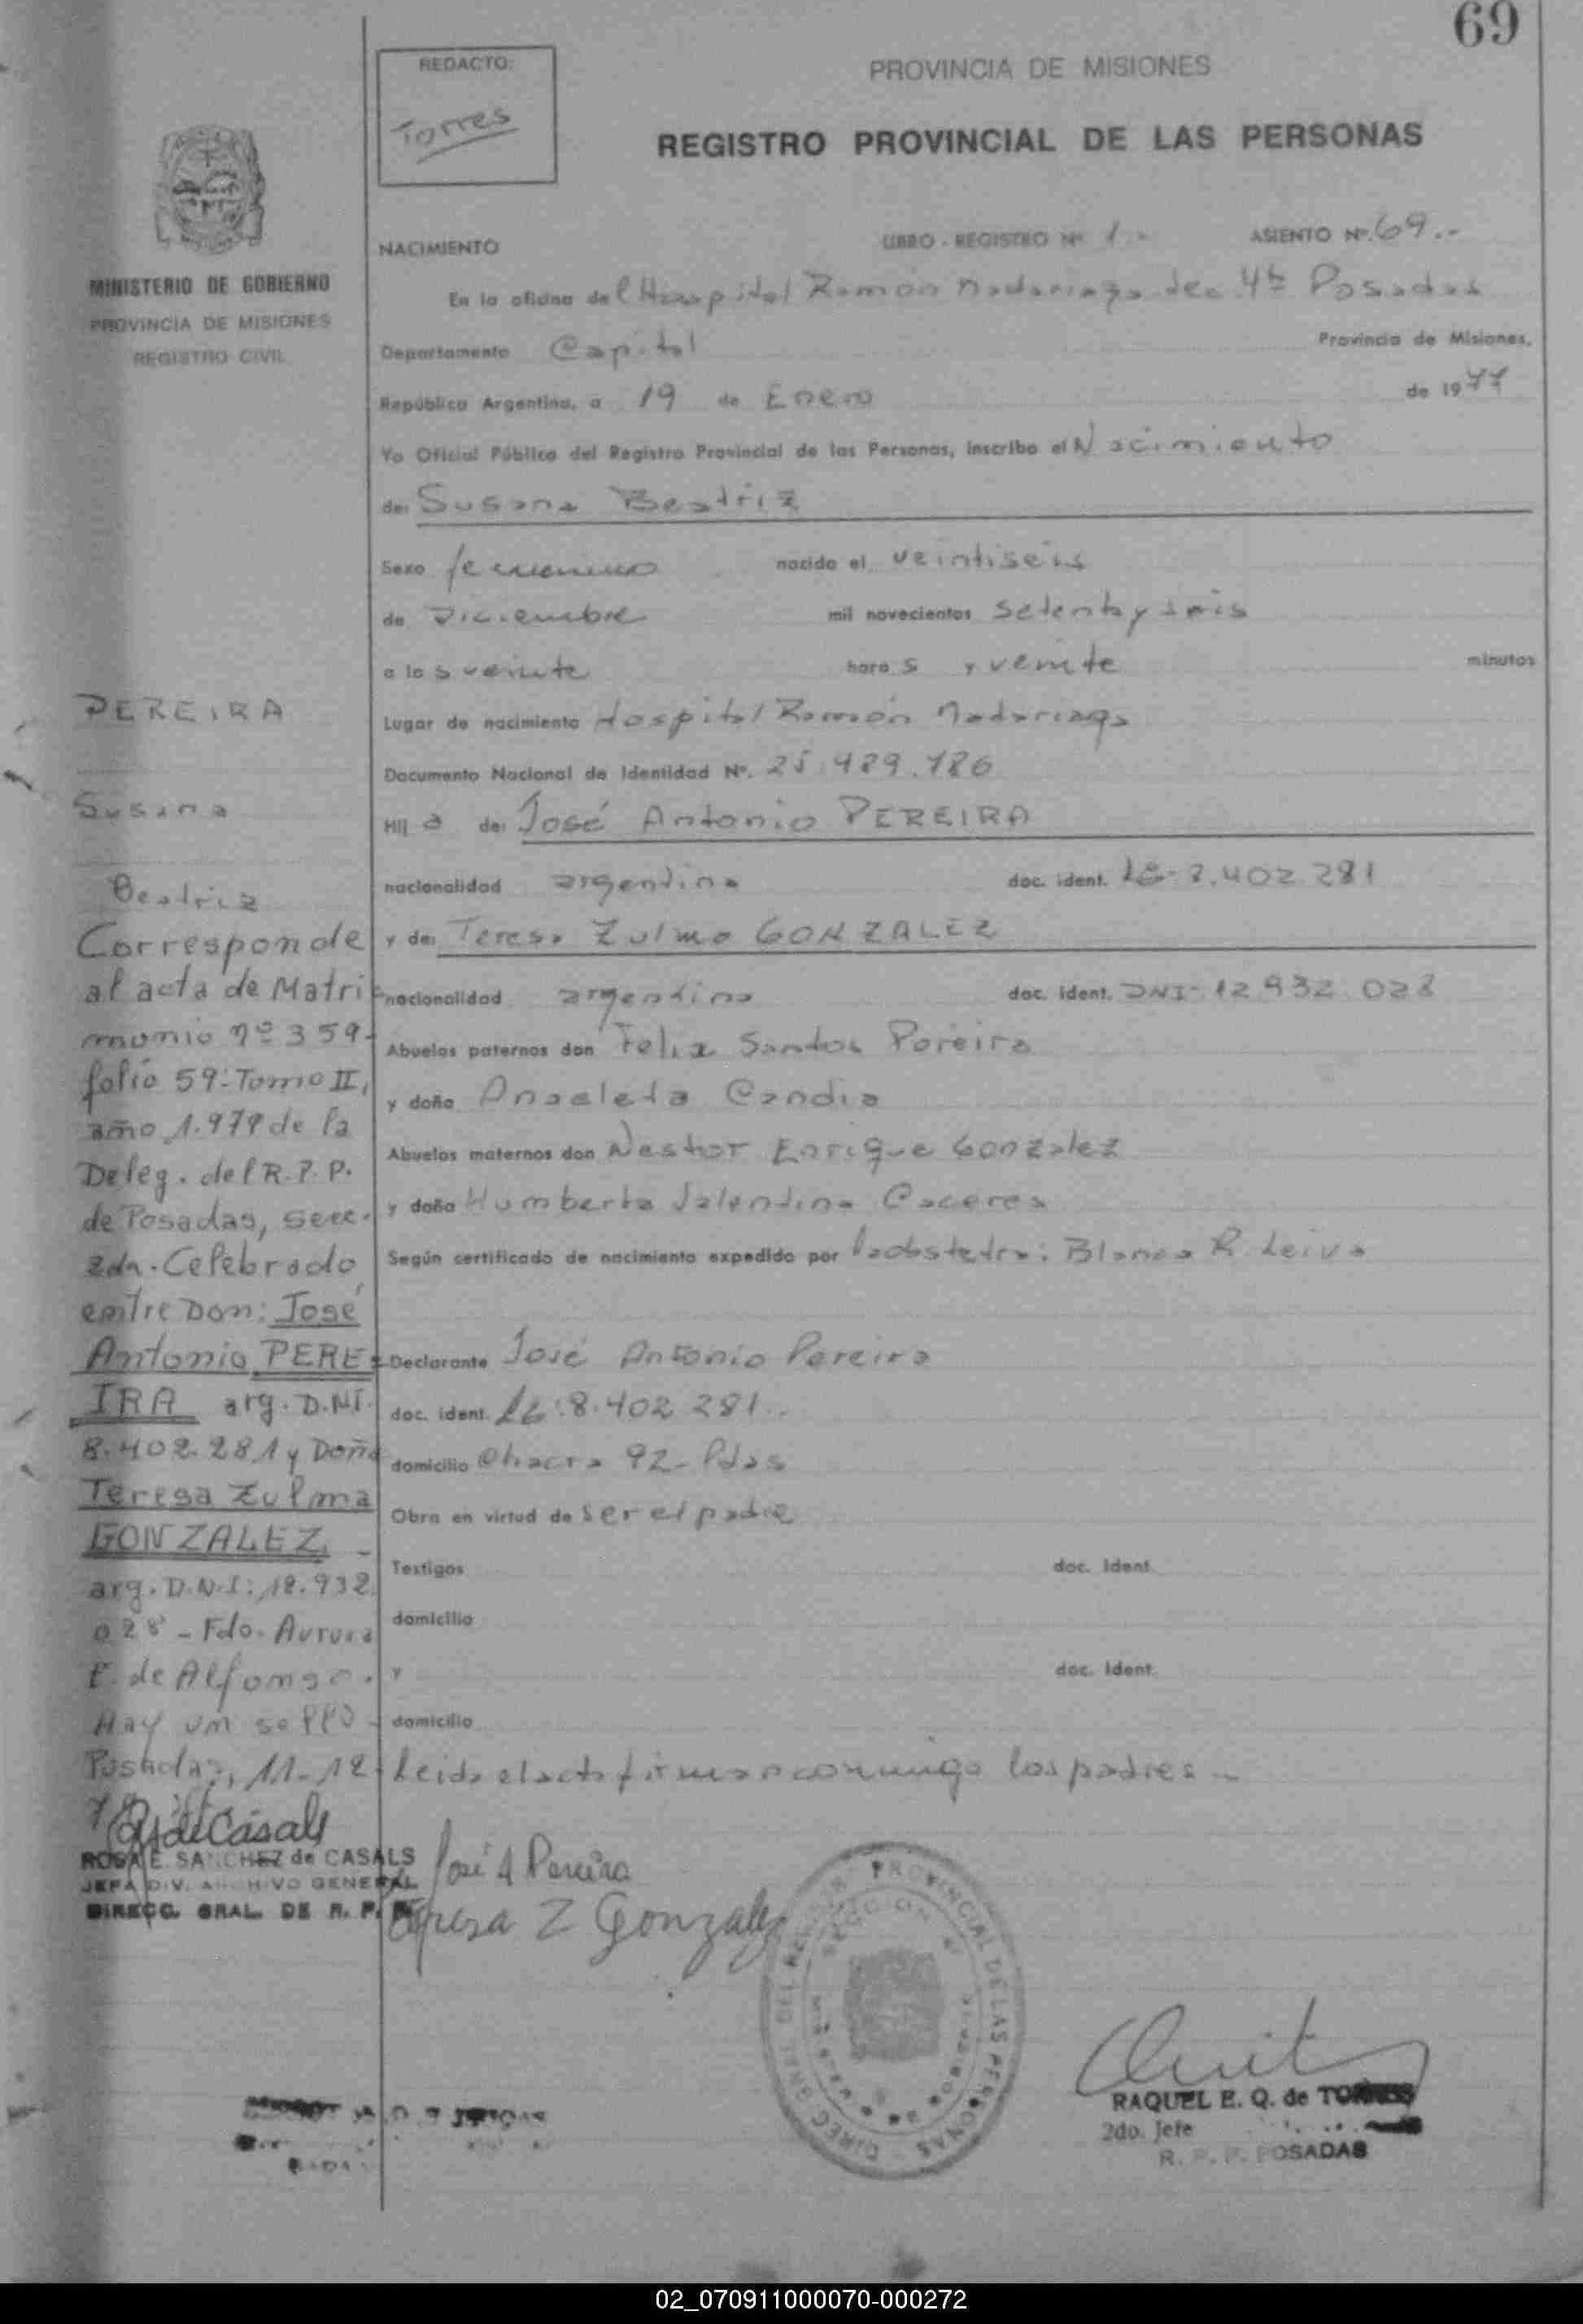 69
REDACTO:
Torres
PROVINCIA DE MISIONES
REGISTRO PROVINCIAL DE LAS PERSONAS
MINISTERIO DE GOBIERNO
PROVINCIA DE MISIONES
REGISTRO CIVIL
NACIMIENTO LIBRO - REGISTRO Nº 1.- ASIENTO Nº. 69.-
En la oficina del Hospital Ramón Madariaga Posadas
Departamento Capital Provincia de Misiones,
República Argentina, a 19 de Enero de 1977
Yo Oficial Público del Registro Provincial de las Personas, inscribo el Nacimiento
de: Susana Beatriz
Sexo femenino nacido el veintiseis
de Diciembre mil novecientos setenta y seis
a las veinte horas y veinte minutos
Lugar de nacimiento Hospital Ramón Madariaga
Documento Nacional de Identidad Nº. 25.429.786
Hija de: José Antonio PEREIRA
nacionalidad argentina doc. ident. LE- 8.402.281
y de: Teresa Zulma GONZALEZ
nacionalidad argentina doc. ident. DNI- 12.932.028
Abuelos paternos don Felix Santos Pereira
y doña Anacleta Candia
Abuelos maternos don Nestor Enrique Gonzalez
y doña Humberta Valentina Caceres
Según certificado de nacimiento expedido por la obstetra: Blanca R. Leiva
Declarante José Antonio Pereira
doc. ident. LE: 8.402.281.-
domicilio Chacra 92- Pdas
Obra en virtud de ser el padre
Testigos doc. ident.
domicilio
y doc. ident.
domicilio
Leida el acta firman conmigo los padres.-
PEREIRA
Susana
Beatriz
Corresponde
al acta de Matri-
monio nº 359-
folio 59- Tomo II,
año 1.979 de la
Deleg. del R.P.P.
de Posadas, secc.
2da. Celebrado
entre Don: José
Antonio PERE-
IRA arg. D.NI.
8.402.281 y Doña
Teresa Zulma
GONZALEZ -
arg. D.N.I: 12.932.
028 - Fdo. Aurora
E. de Alfonso.
Hay un sello -
Posadas, 11-12-
ROSA E. SANCHEZ de CASALS
JEFA DIV. ARCHIVO GENERAL
DIRECC. GRAL. DE R. P. P.
José A Pereira
Teresa Z Gonzalez
DIREC. GRAL. DEL REG. PROVINCIAL DE LAS PERSONAS
RAQUEL E. Q. de TORRES
2do. Jefe
R. P. P. POSADAS
02_070911000070-000272